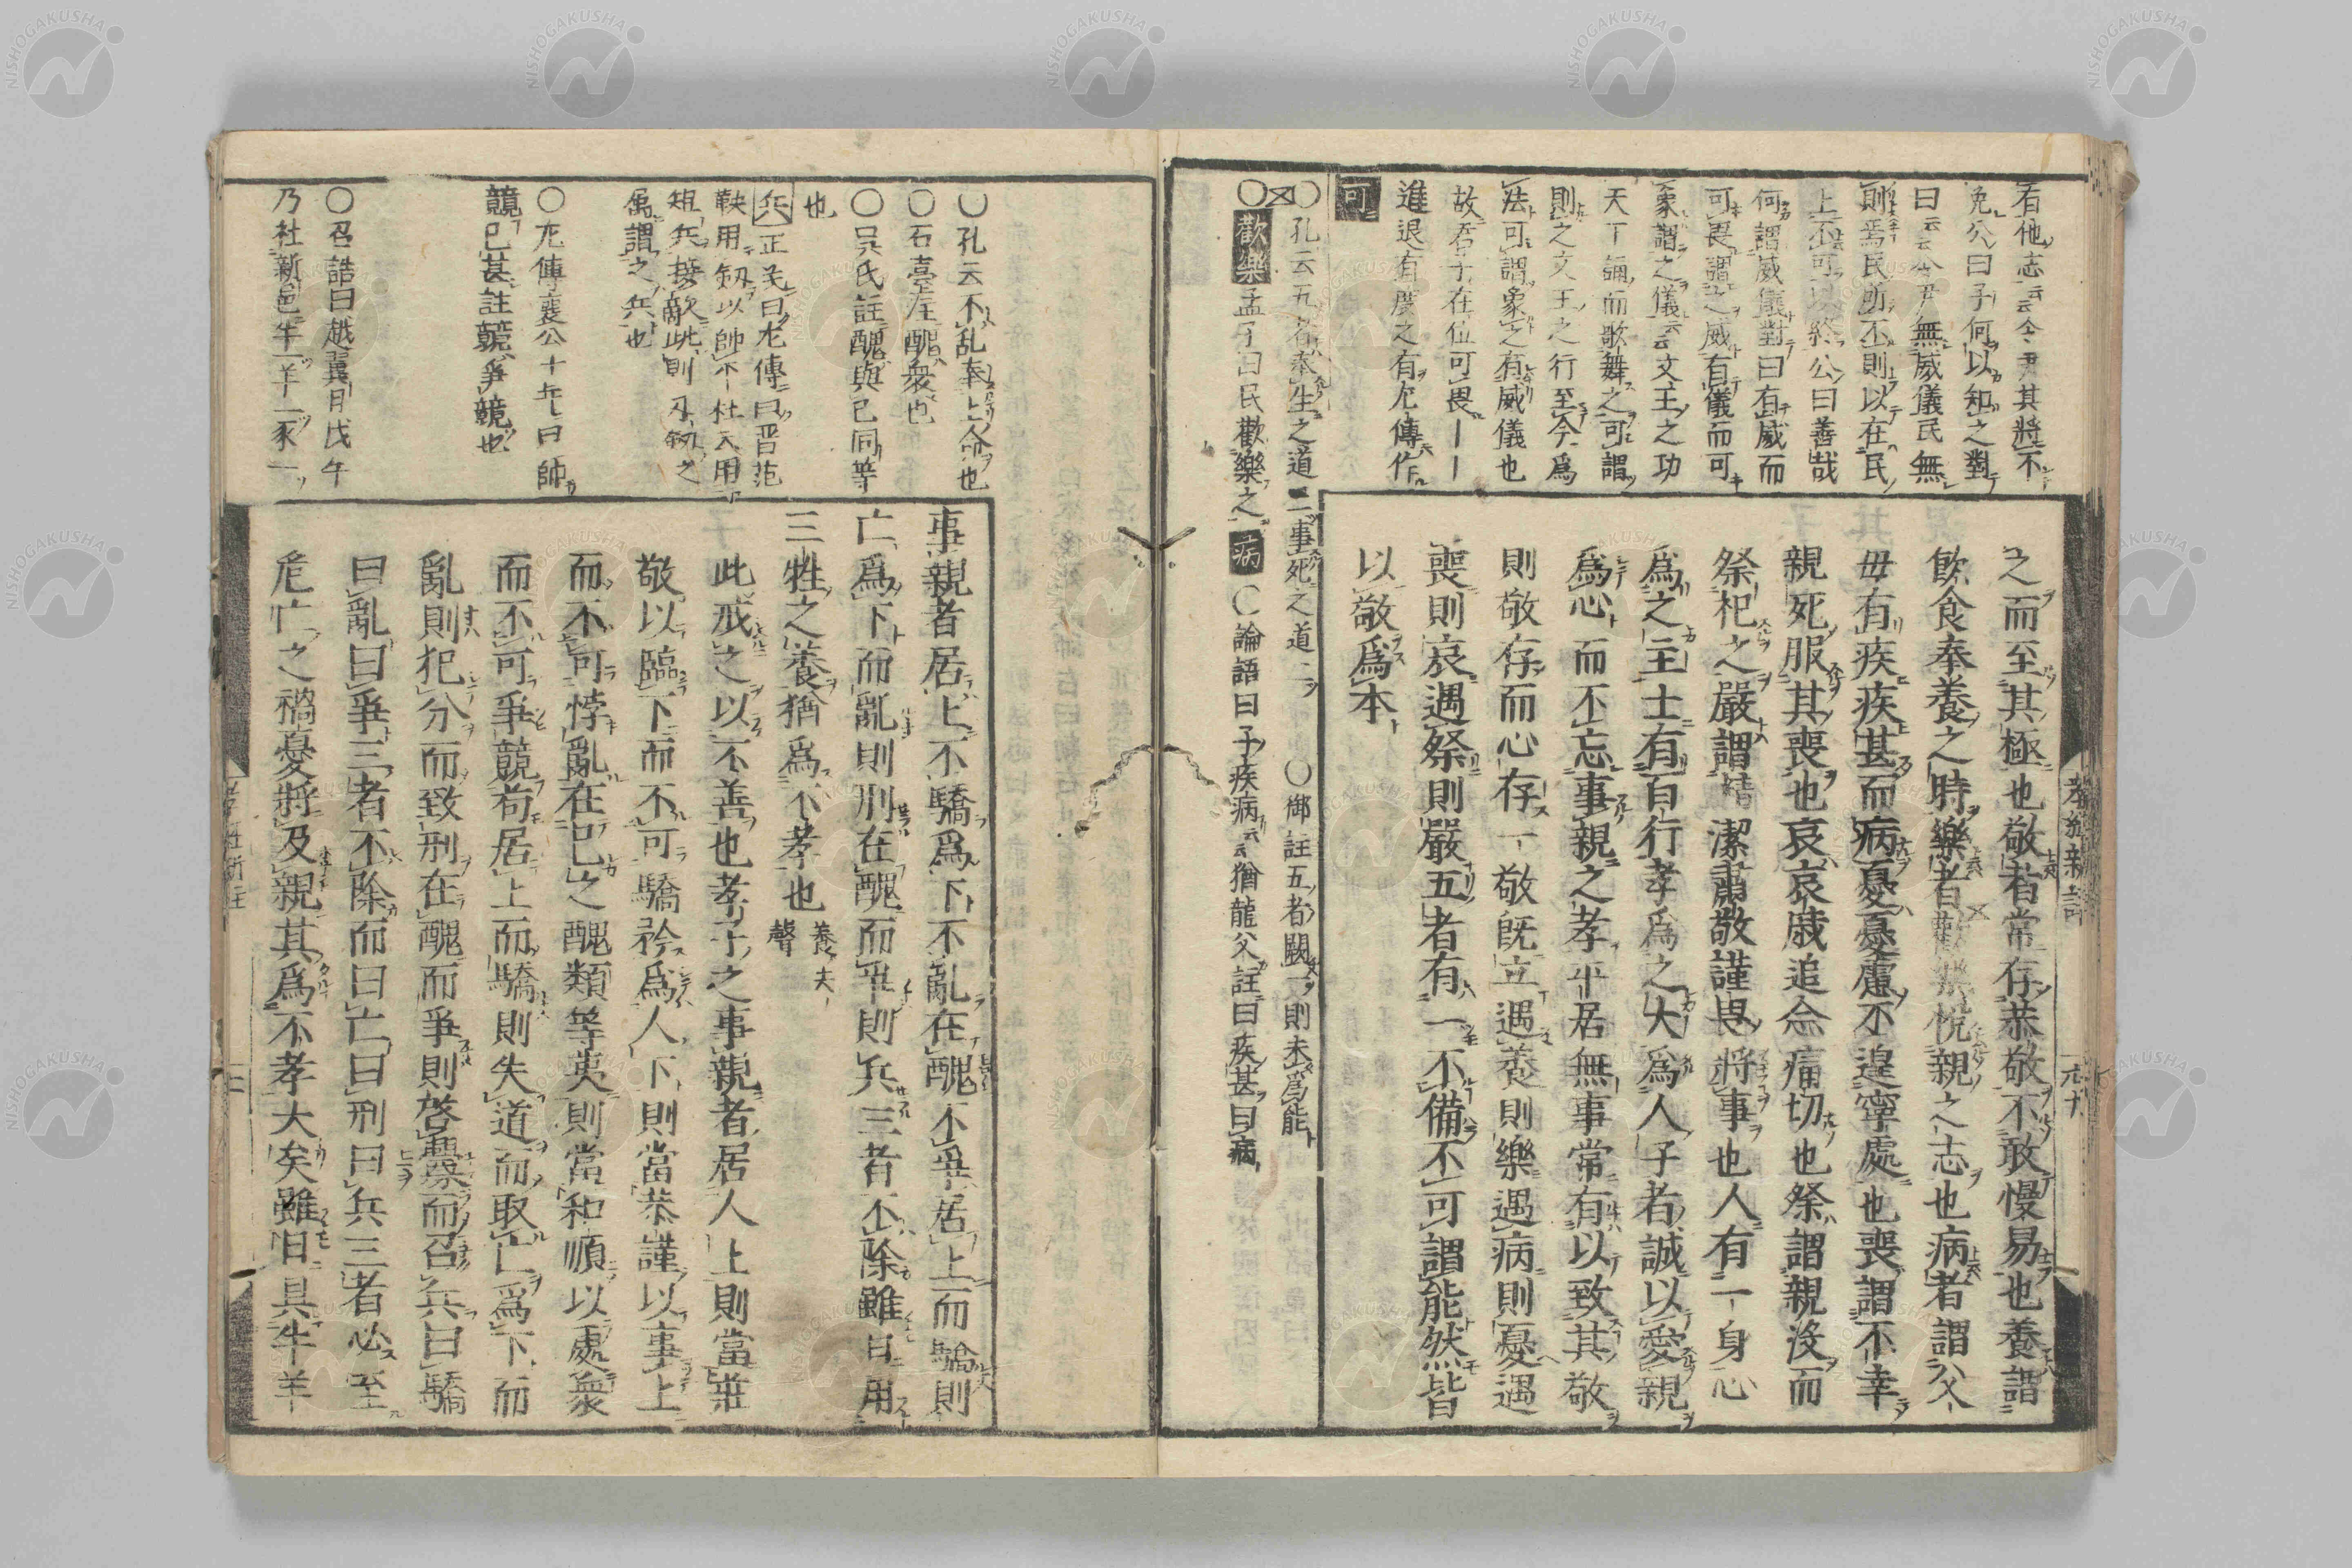 有他志云云令尹其將不
免公曰子何以知之對
曰云云令尹無威儀民無
則焉民所不則以在民
上不可以終公曰善哉
何謂威儀對曰有威而
可畏謂之威有儀而可
象謂之儀云云文王之功
天下誦而歌舞之可謂
則之文王之行至今爲
法可謂象之有威儀也
故君子在位可畏——
進退有度之有左傳作
可
○孔云五者奉生之道三事死之道二 ○御註五者闕一則未爲能
○歡樂孟子曰民歡樂之 病○論語曰子疾病云云猶龍父註曰疾甚曰病
之而至其極也敬者常存恭敬不敢慢易也養謂
飲食奉養之時樂者歡樂悅親之志也病者謂父
母有疾疾甚而病憂憂慮不遑寧處也喪謂不幸
親死服其喪也哀哀戚追念痛切也祭謂親沒而
祭祀之嚴謂精潔肅敬謹畏將事也人有一身心
爲之主士有百行孝爲之大爲人子者誠以愛親
爲心而不忘事親之孝平居無事常有以致其敬
則敬存而心存一敬旣立遇養則樂遇病則憂遇
喪則哀遇祭則嚴五者有一不備不可謂能然皆
以敬爲本
孝經新註
○孔云不亂奉上命也
○石臺庄醜衆也
○吳氏註醜與己同等
也
兵正義曰左傳曰晋范
鞅用劔以帥卒杜云用
短兵接敵此則刃劔之
属謂之兵也
○左傳襄公十年曰師
競已甚註競爭競也
○召誥曰越翼日戊午
乃社新邑牛一羊一豕一
事親者居上不驕爲下不亂在醜不爭居上而驕則
亡爲下而亂則刑在醜而爭則兵三者不除雖日用
三牲之養猶爲不孝也 養去聲
此戒之以不善也孝子之事親者居人上則當莊
敬以臨下而不可驕矜爲人下則當恭謹以事上
而不可悖亂在已之醜類等夷則當和順以處衆
而不可爭競苟居上而驕則失道而取亡爲下而
亂則犯分而致刑在醜而爭則啓釁而召兵曰驕
曰亂曰爭三者不除而曰亡曰刑曰兵三者必至
危亡之禍憂將及親其爲不孝大矣雖日具牛羊